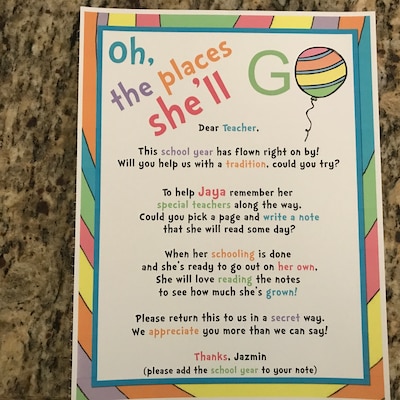 Oh,
the places
she'll GO
Dear Teacher,
This school year has flown right on by!
Will you help us with a tradition, could you try?
To help Jaya remember her
special teachers along the way.
Could you pick a page and write a note
that she will read some day?
When her schooling is done
and she's ready to go out on her own.
She will love reading the notes
to see how much she's grown!
Please return this to us in a secret way.
We appreciate you more than we can say!
Thanks, Jazmin
(please add the school year to your note)